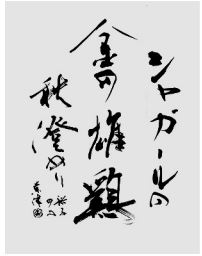 シャガールの
金の雄鶏
秋澄めり